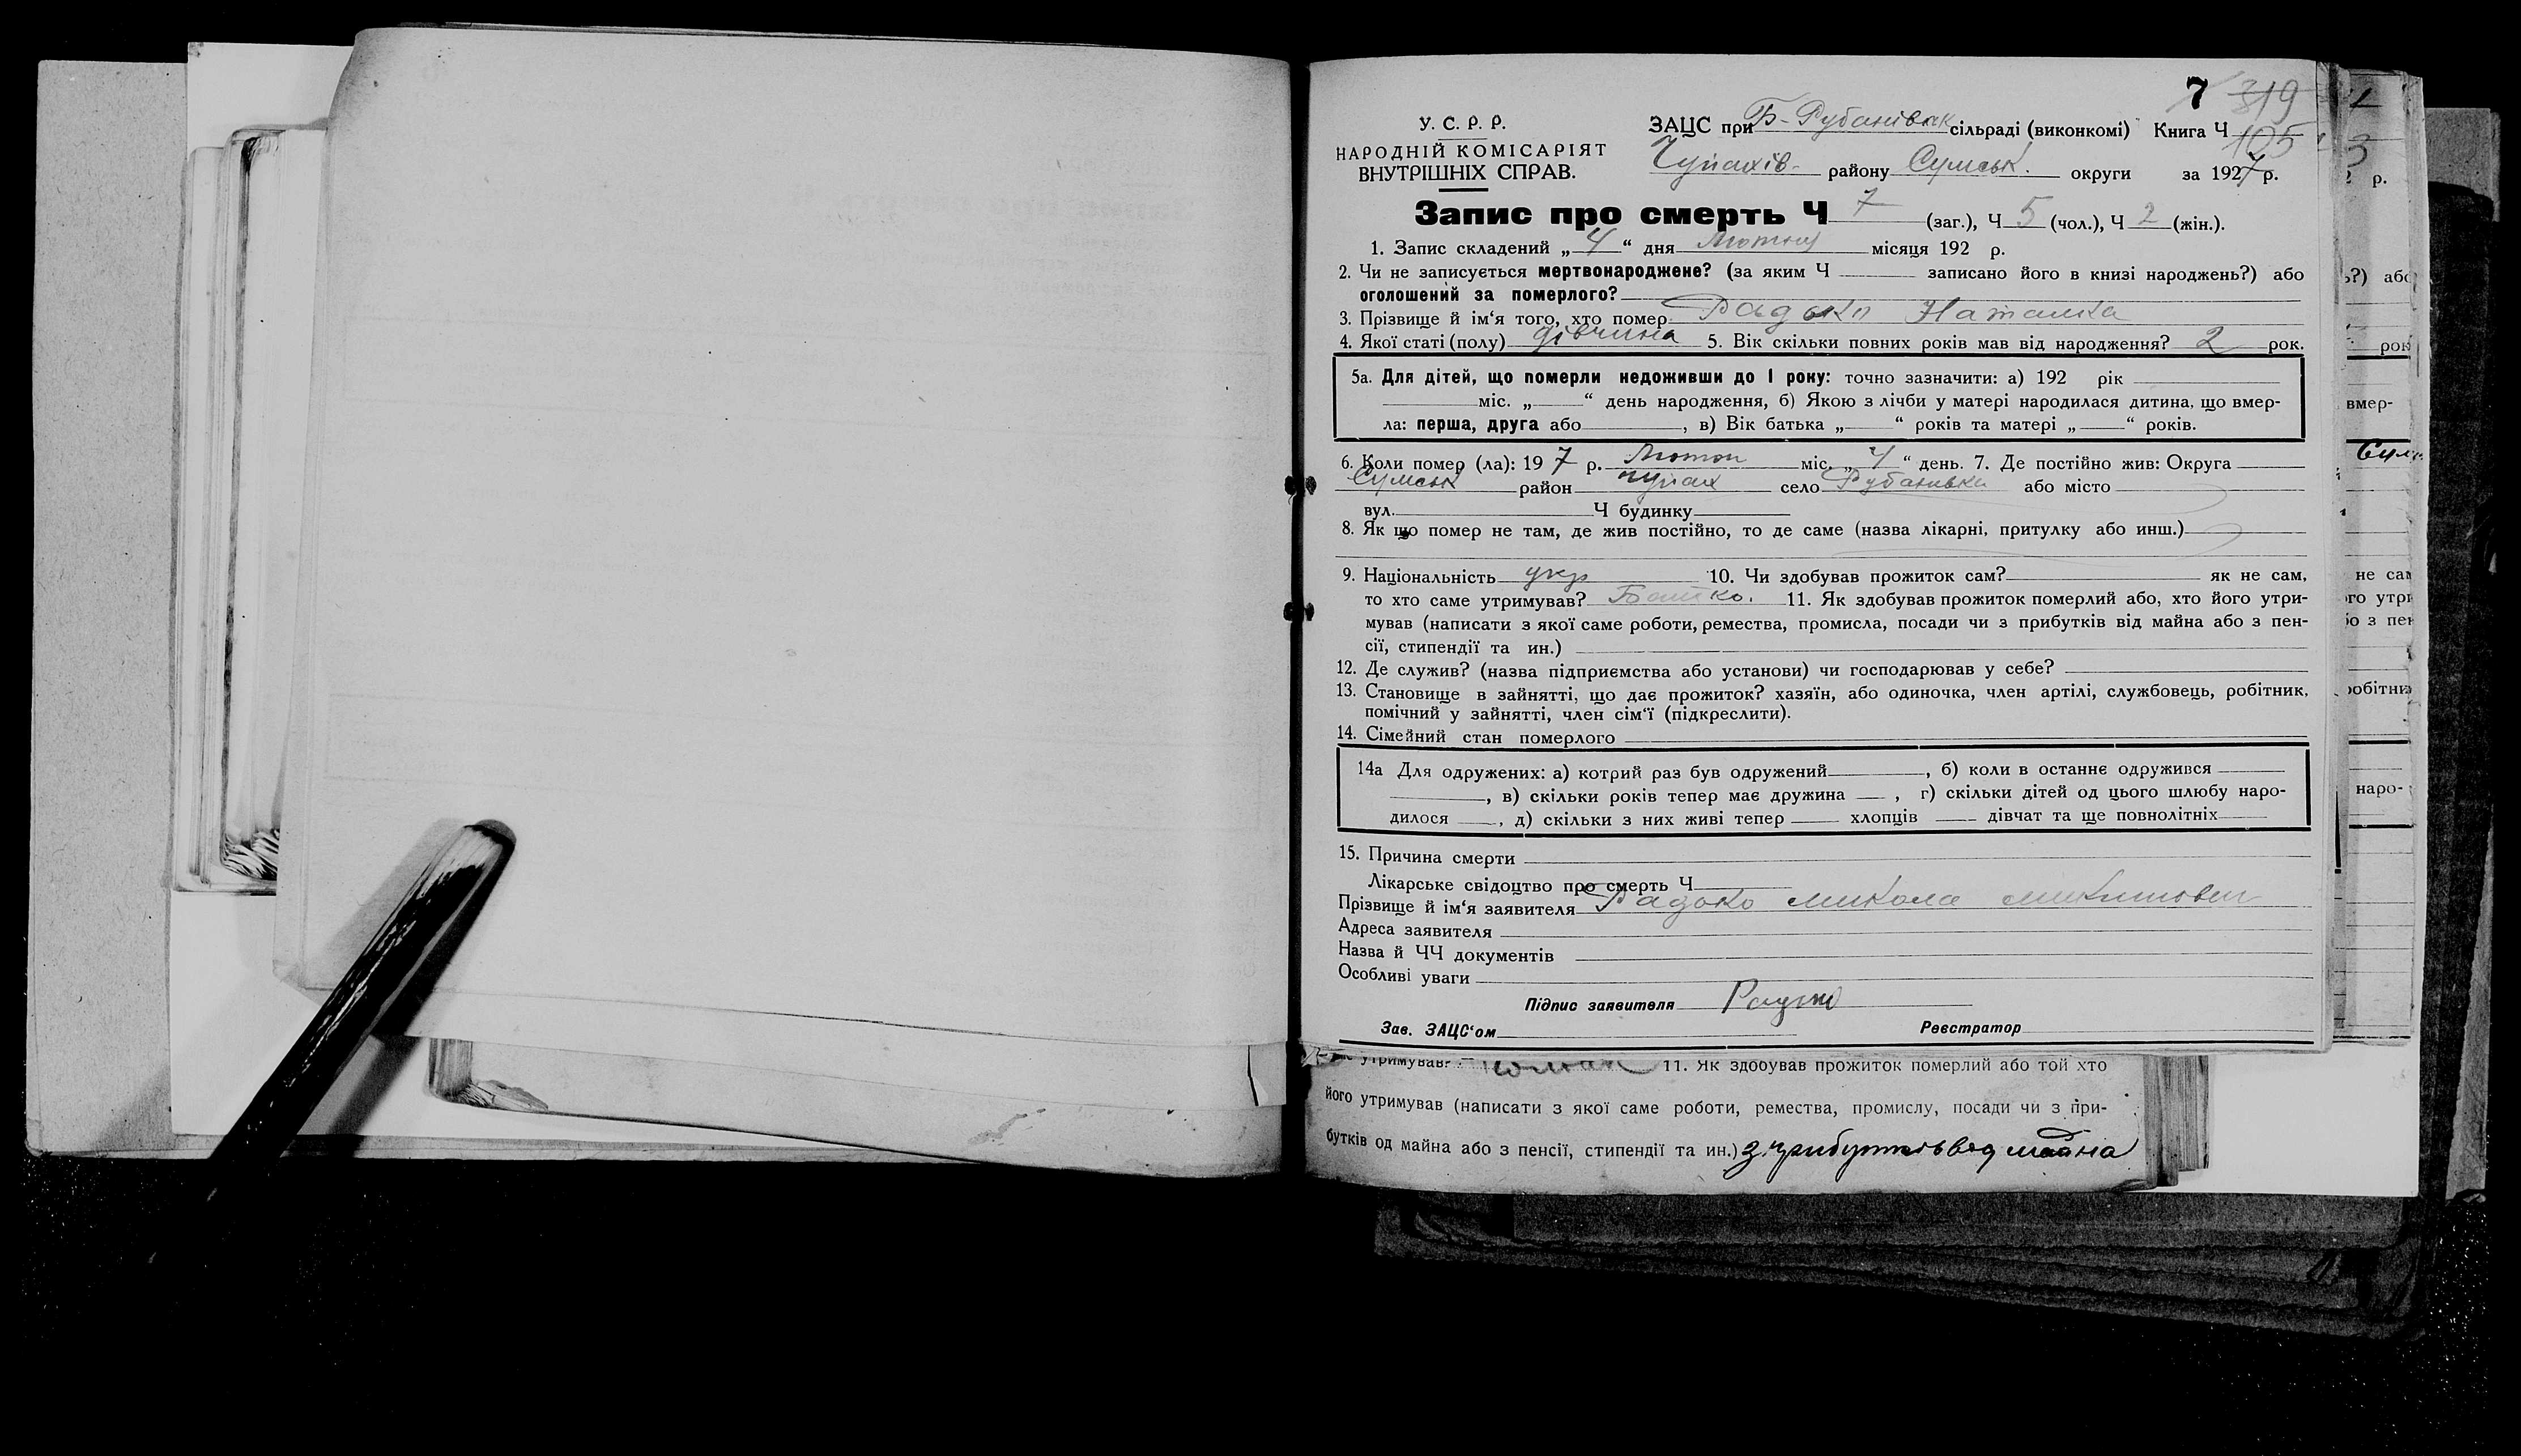 7 319
105
У. С. Р. Р.
НАРОДНІЙ КОМІСАРІЯТ
ВНУТРІШНІХ СПРАВ.
ЗАЦС при Б-Рубанівск сільраді (виконкомі) Книга Ч
Чупахів- району Сумськ. округи за 1927 р.
Запис про смерть Ч 7 (заг.), Ч 5 (чол.), Ч 2 (жін.).
1. Запис складений „ 4 “ дня Лютого місяця 192 р.
2. Чи не записується мертвонароджене? (за яким Ч записано його в книзі народжень?) або
оголошений за померлого?
3. Прізвище й ім‘я того, хто помер Радько Наталка
4. Якої статі (полу) дівчина 5. Вік скільки повних років мав від народження? 2 рок.
5а. Для дітей, що померли недоживши до 1 року: точно зазначити: а) 192 рік
міс. „ “ день народження, б) Якою з лічби у матері народилася дитина, що вмер-
ла: перша, друга або , в) Вік батька „ “ років та матері „ “ років.
6. Коли помер (ла): 19 7 р. Лютого міс. „ 4 “ день. 7. Де постійно жив: Округа
Сумськ район Чупах село Рубанівка або місто
вул. Ч будинку
8. Як що помер не там, де жив постійно, то де саме (назва лікарні, притулку або инш.)
9. Національність укр 10. Чи здобував прожиток сам? як не сам,
то хто саме утримував? Батько. 11. Як здобував прожиток померлий або, хто його утри-
мував (написати з якої саме роботи, ремества, промисла, посади чи з прибутків від майна або з пен-
сії, стипендії та ин.)
12. Де служив? (назва підприємства або установи) чи господарював у себе?
13. Становище в зайнятті, що дає прожиток? хазяїн, або одиночка, член артілі, службовець, робітник,
помічний у зайнятті, член сім‘ї (підкреслити).
14. Сімейний стан померлого
14а Для одружених: а) котрий раз був одружений , б) коли в останнє одружився
, в) скільки років тепер має дружина , г) скільки дітей од цього шлюбу наро-
дилося , д) скільки з них живі тепер хлопців дівчат та ще повнолітніх
15. Причина смерти
Лікарське свідоцтво про смерть Ч
Прізвище й ім‘я заявителя Радько Микола
Адреса заявителя
Назва й ЧЧ документів
Особливі уваги
Підпис заявителя Радько
Зав. ЗАЦС‘ом Реєстратор
утримував? 11. Як здобував прожиток померлий або той хто
його утримував (написати з якої саме роботи, ремества, промислу, посади чи з при-
бутків од майна або з пенсії, стипендії та ин.) з прибутків від майна